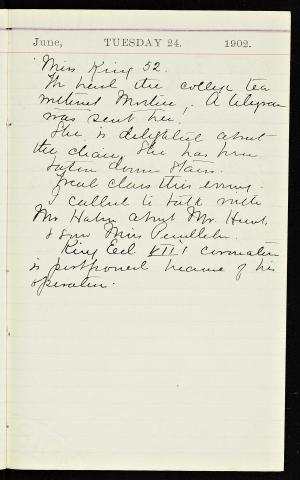 June, TUESDAY 24. 1902.
Miss King 52.
We had the college tea
without Mortier. A telegram
was sent her.
She is delighted about
the chair. She has been
taken down stairs.
Great class this evening.
I called to talk with
Mr about Mr. Hunt,
& saw Miss Pendleton.
King Ed. VII's coronation
is postponed because of his
operation.